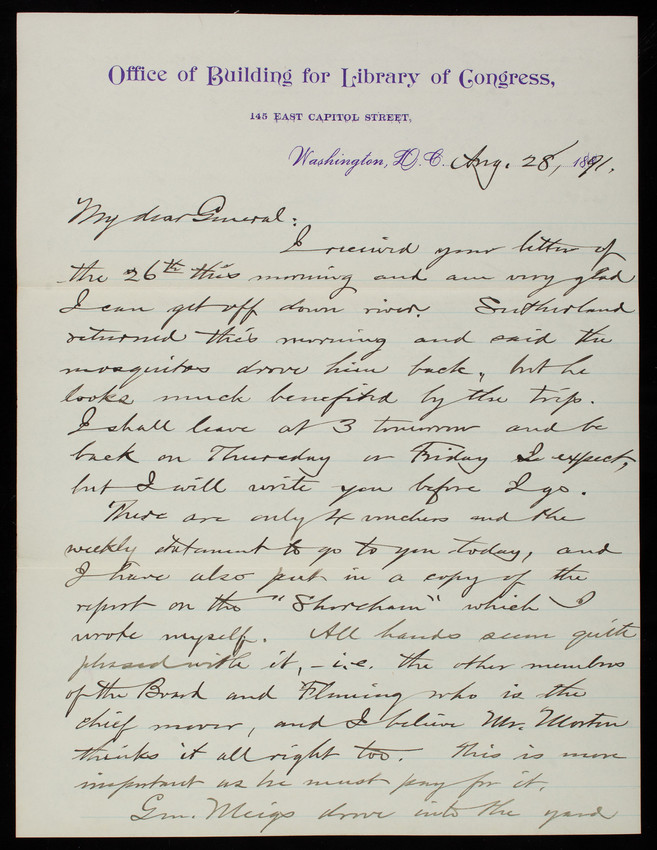 Office of Building for Library of Congress,
145 EAST CAPITOL STREET,
Washington, D.C. Aug. 28, 1891.
My dear General:
I received your letter of
the 26th this morning and am very glad
I can get off down river. Sutherland
returned this morning and said the
mosquitos drove him back, but he
looks much benefited by the trip.
I shall leave at 3 tomorrow and be
back on Thursday or Friday I expect,
but I will write you before I go.
There are only 4 vouchers and the
weekly statement to go to you today, and
I have also put in a copy of the
report on the "Shoreham" which I
wrote myself. All hands seem quite
pleased with it, - i.e. the other members
of the Board and Fleming who is the
chief mover, and I believe Mr. Morton
thinks it all right too. This is more
important as he must pay for it.
Gen. Meigs drove into the yard